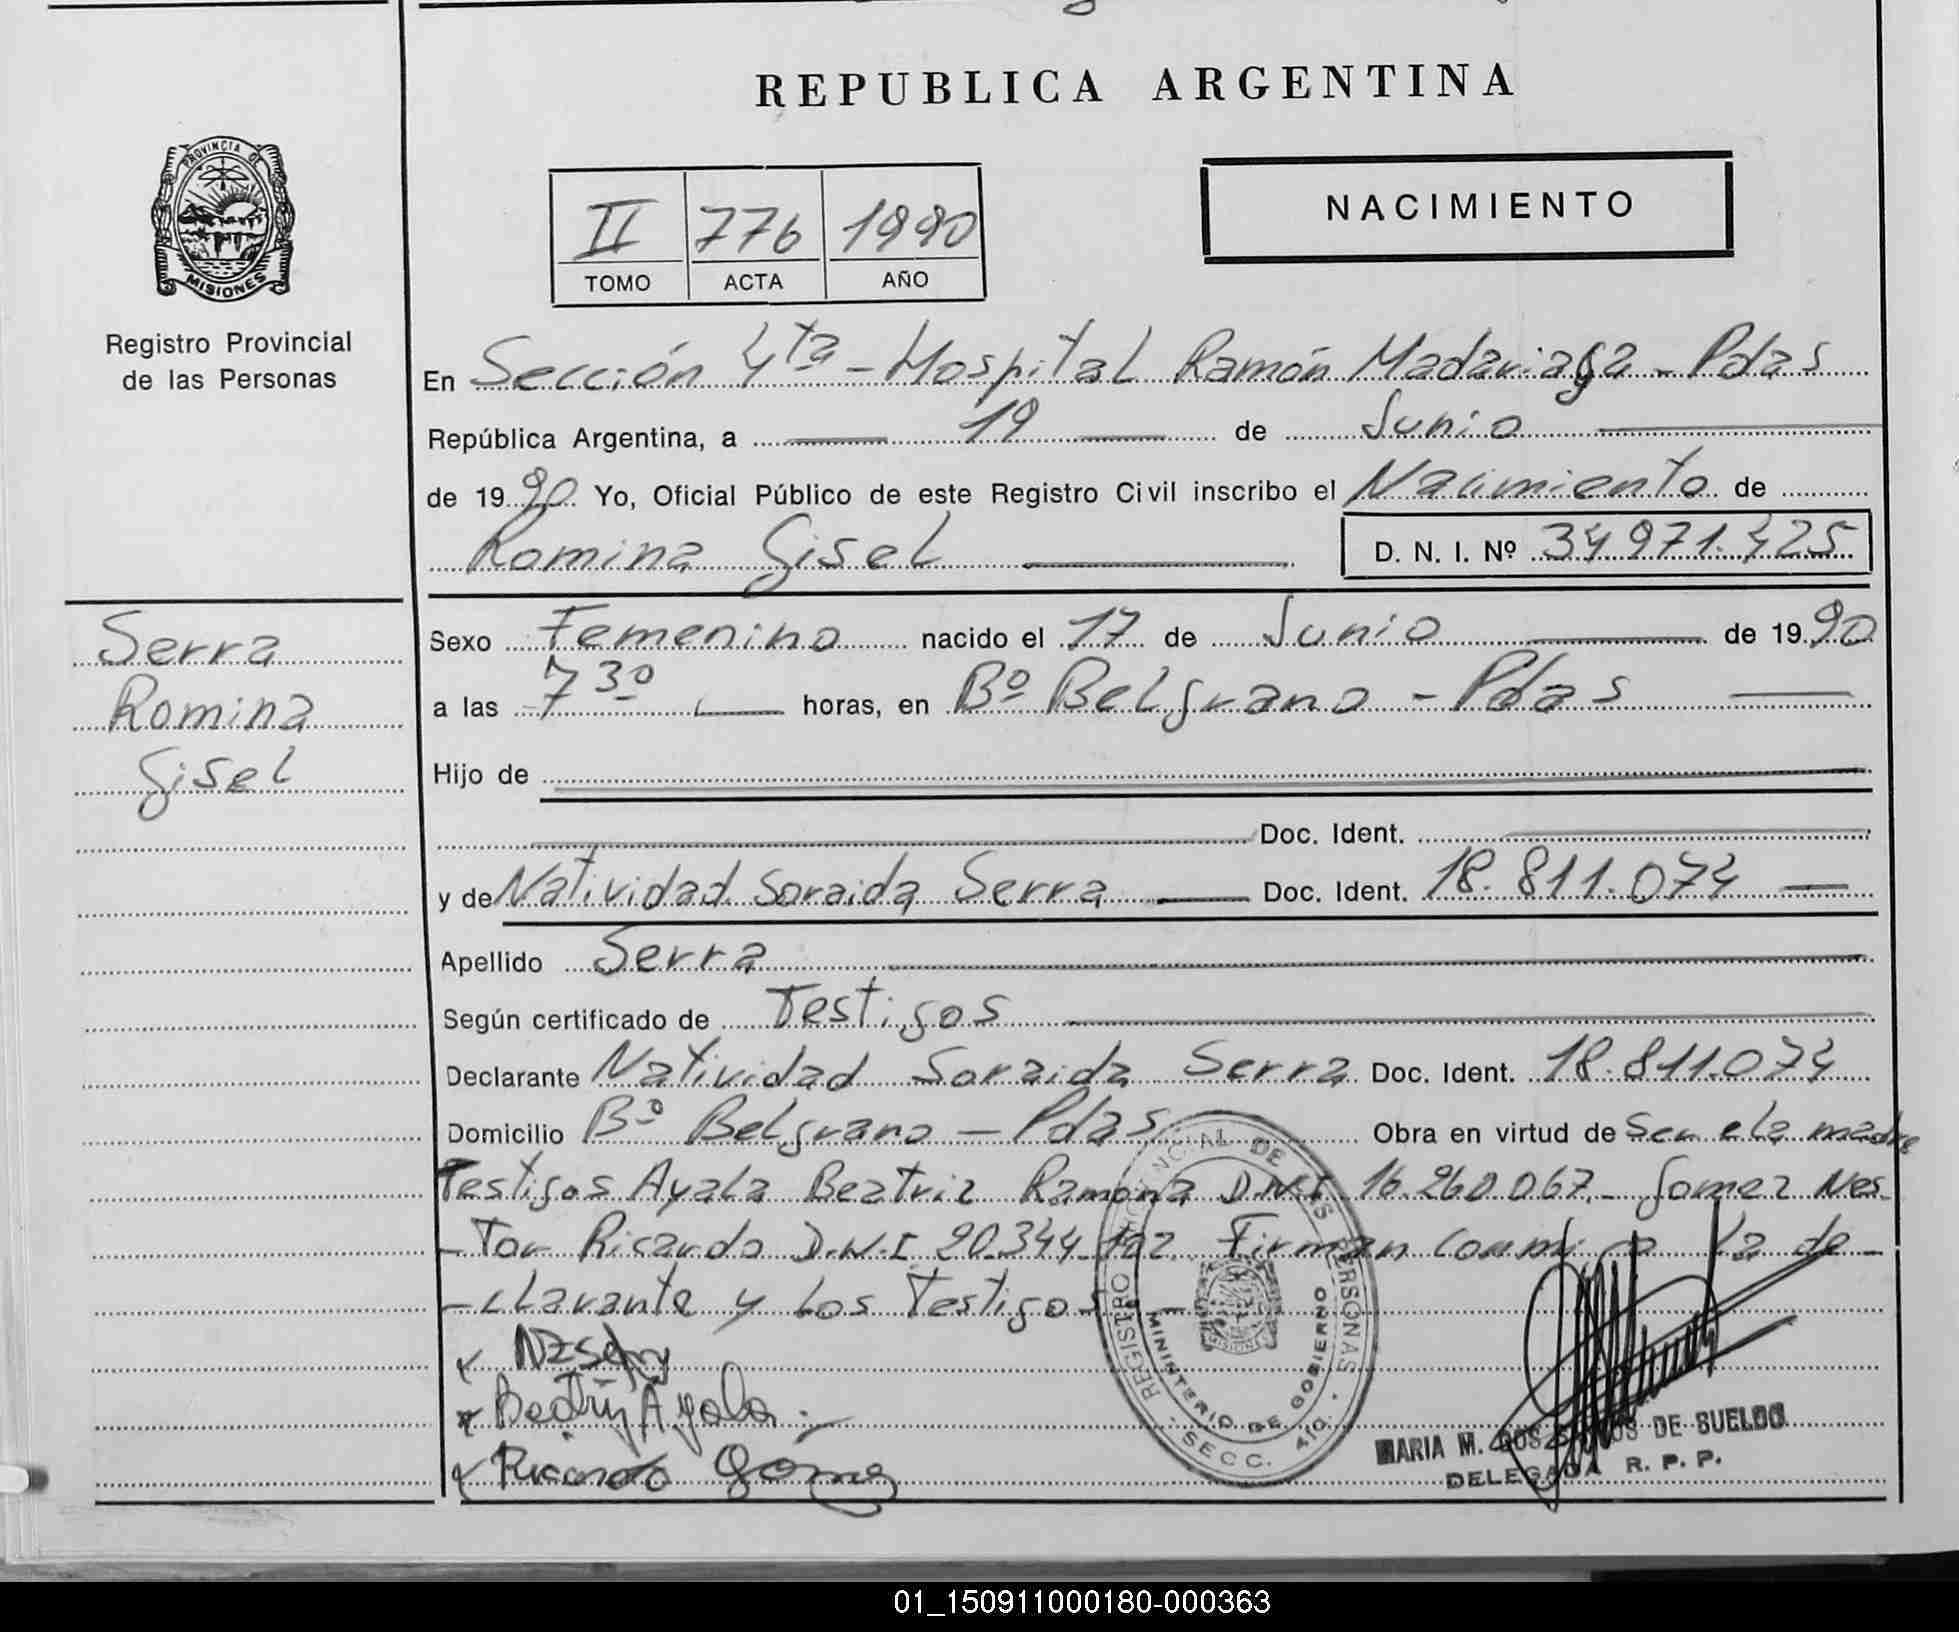 REPUBLICA ARGENTINA
PROVINCIA DE
MISIONES
Registro Provincial
de las Personas
II 776 1990
TOMO ACTA AÑO
NACIMIENTO
En Sección 4ta - Hospital Ramón Madariaga - Pdas
República Argentina, a 19 de Junio
de 1990 Yo, Oficial Público de este Registro Civil inscribo el Nacimiento de
Romina Gisel D. N. I. Nº 34971.425
Serra
Romina
Gisel
Sexo Femenino nacido el 17 de Junio de 1990
a las 7 30 horas, en Bº Belgrano - Pdas
Hijo de
Doc. Ident.
y de Natividad Soraida Serra Doc. Ident. 18.811.074
Apellido Serra
Según certificado de Testigos
Declarante Natividad Soraida Serra Doc. Ident. 18.811.074
Domicilio Bº Belgrano - Pdas Obra en virtud de Ser ela madre
Testigos Ayala Beatriz Ramona D.N.I. 16.260.067.- Gomez Nes-
-tor Ricardo D.N.I. 20.344.102. Firman conmigo la de-
-clarante y los Testigos
Beatriz Ayala
Ricardo Gómez
REGISTRO PROVINCIAL DE LAS PERSONAS
MINISTERIO DE GOBIERNO
SECC. 4ta.
MARIA M. DOS SANTOS DE SUELDO
DELEGADA R. P. P.
01_150911000180-000363